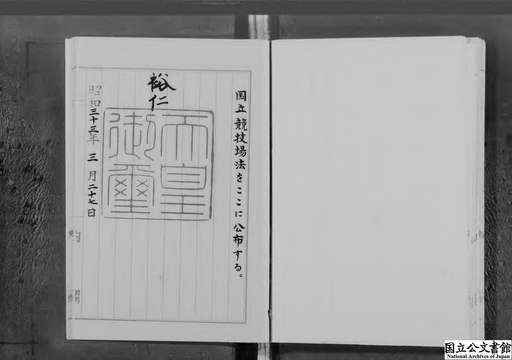 国立競技場法をここに公布する。
裕仁
天皇
御璽
昭和三十三年三月二十七日
国立公文書館
National Archives of Japan